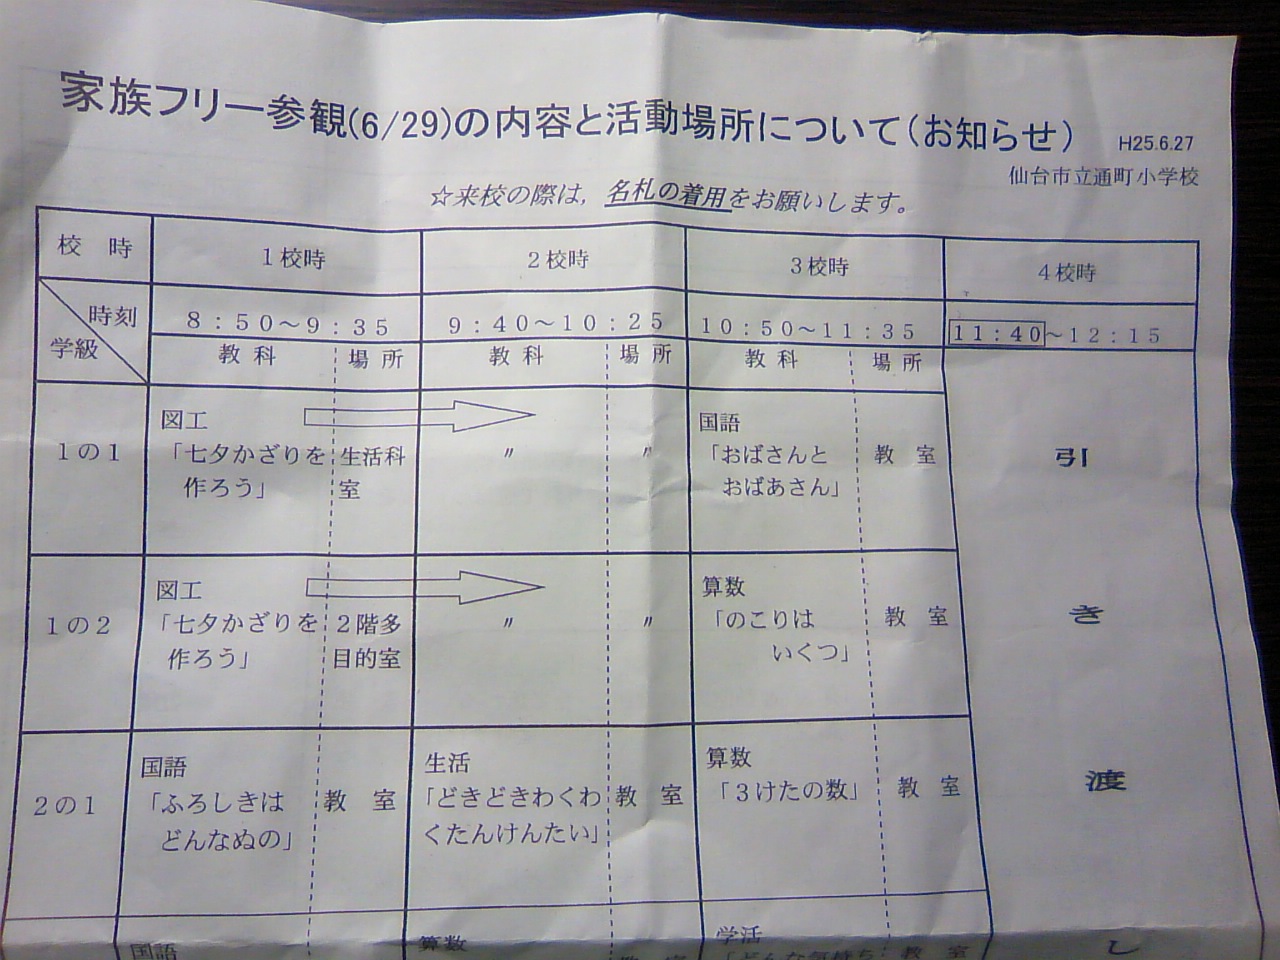 家族フリー参観(6/29)の内容と活動場所について(お知らせ)
H25.6.27
仙台市立通町小学校
☆来校の際は，名札の着用をお願いします。
校　時
１校時
２校時
３校時
４校時
時刻
学級
８：５０～９：３５
９：４０～１０：２５
１０：５０～１１：３５
１１：４０～１２：１５
教科
場所
教科
場所
教科
場所
１の１
図工
「七夕かざりを
作ろう」
生活科
室
〃
〃
国語
「おばさんと
おばあさん」
教　室
引
１の２
図工
「七夕かざりを
作ろう」
２階多
目的室
〃
〃
算数
「のこりは
いくつ」
教　室
き
２の１
国語
「ふろしきは
どんなぬの」
教　室
生活
「どきどきわくわ
くたんけんたい」
教　室
算数
「３けたの数」
教　室
渡
国語
算数
学活
「どんな気持ち
教　室
し